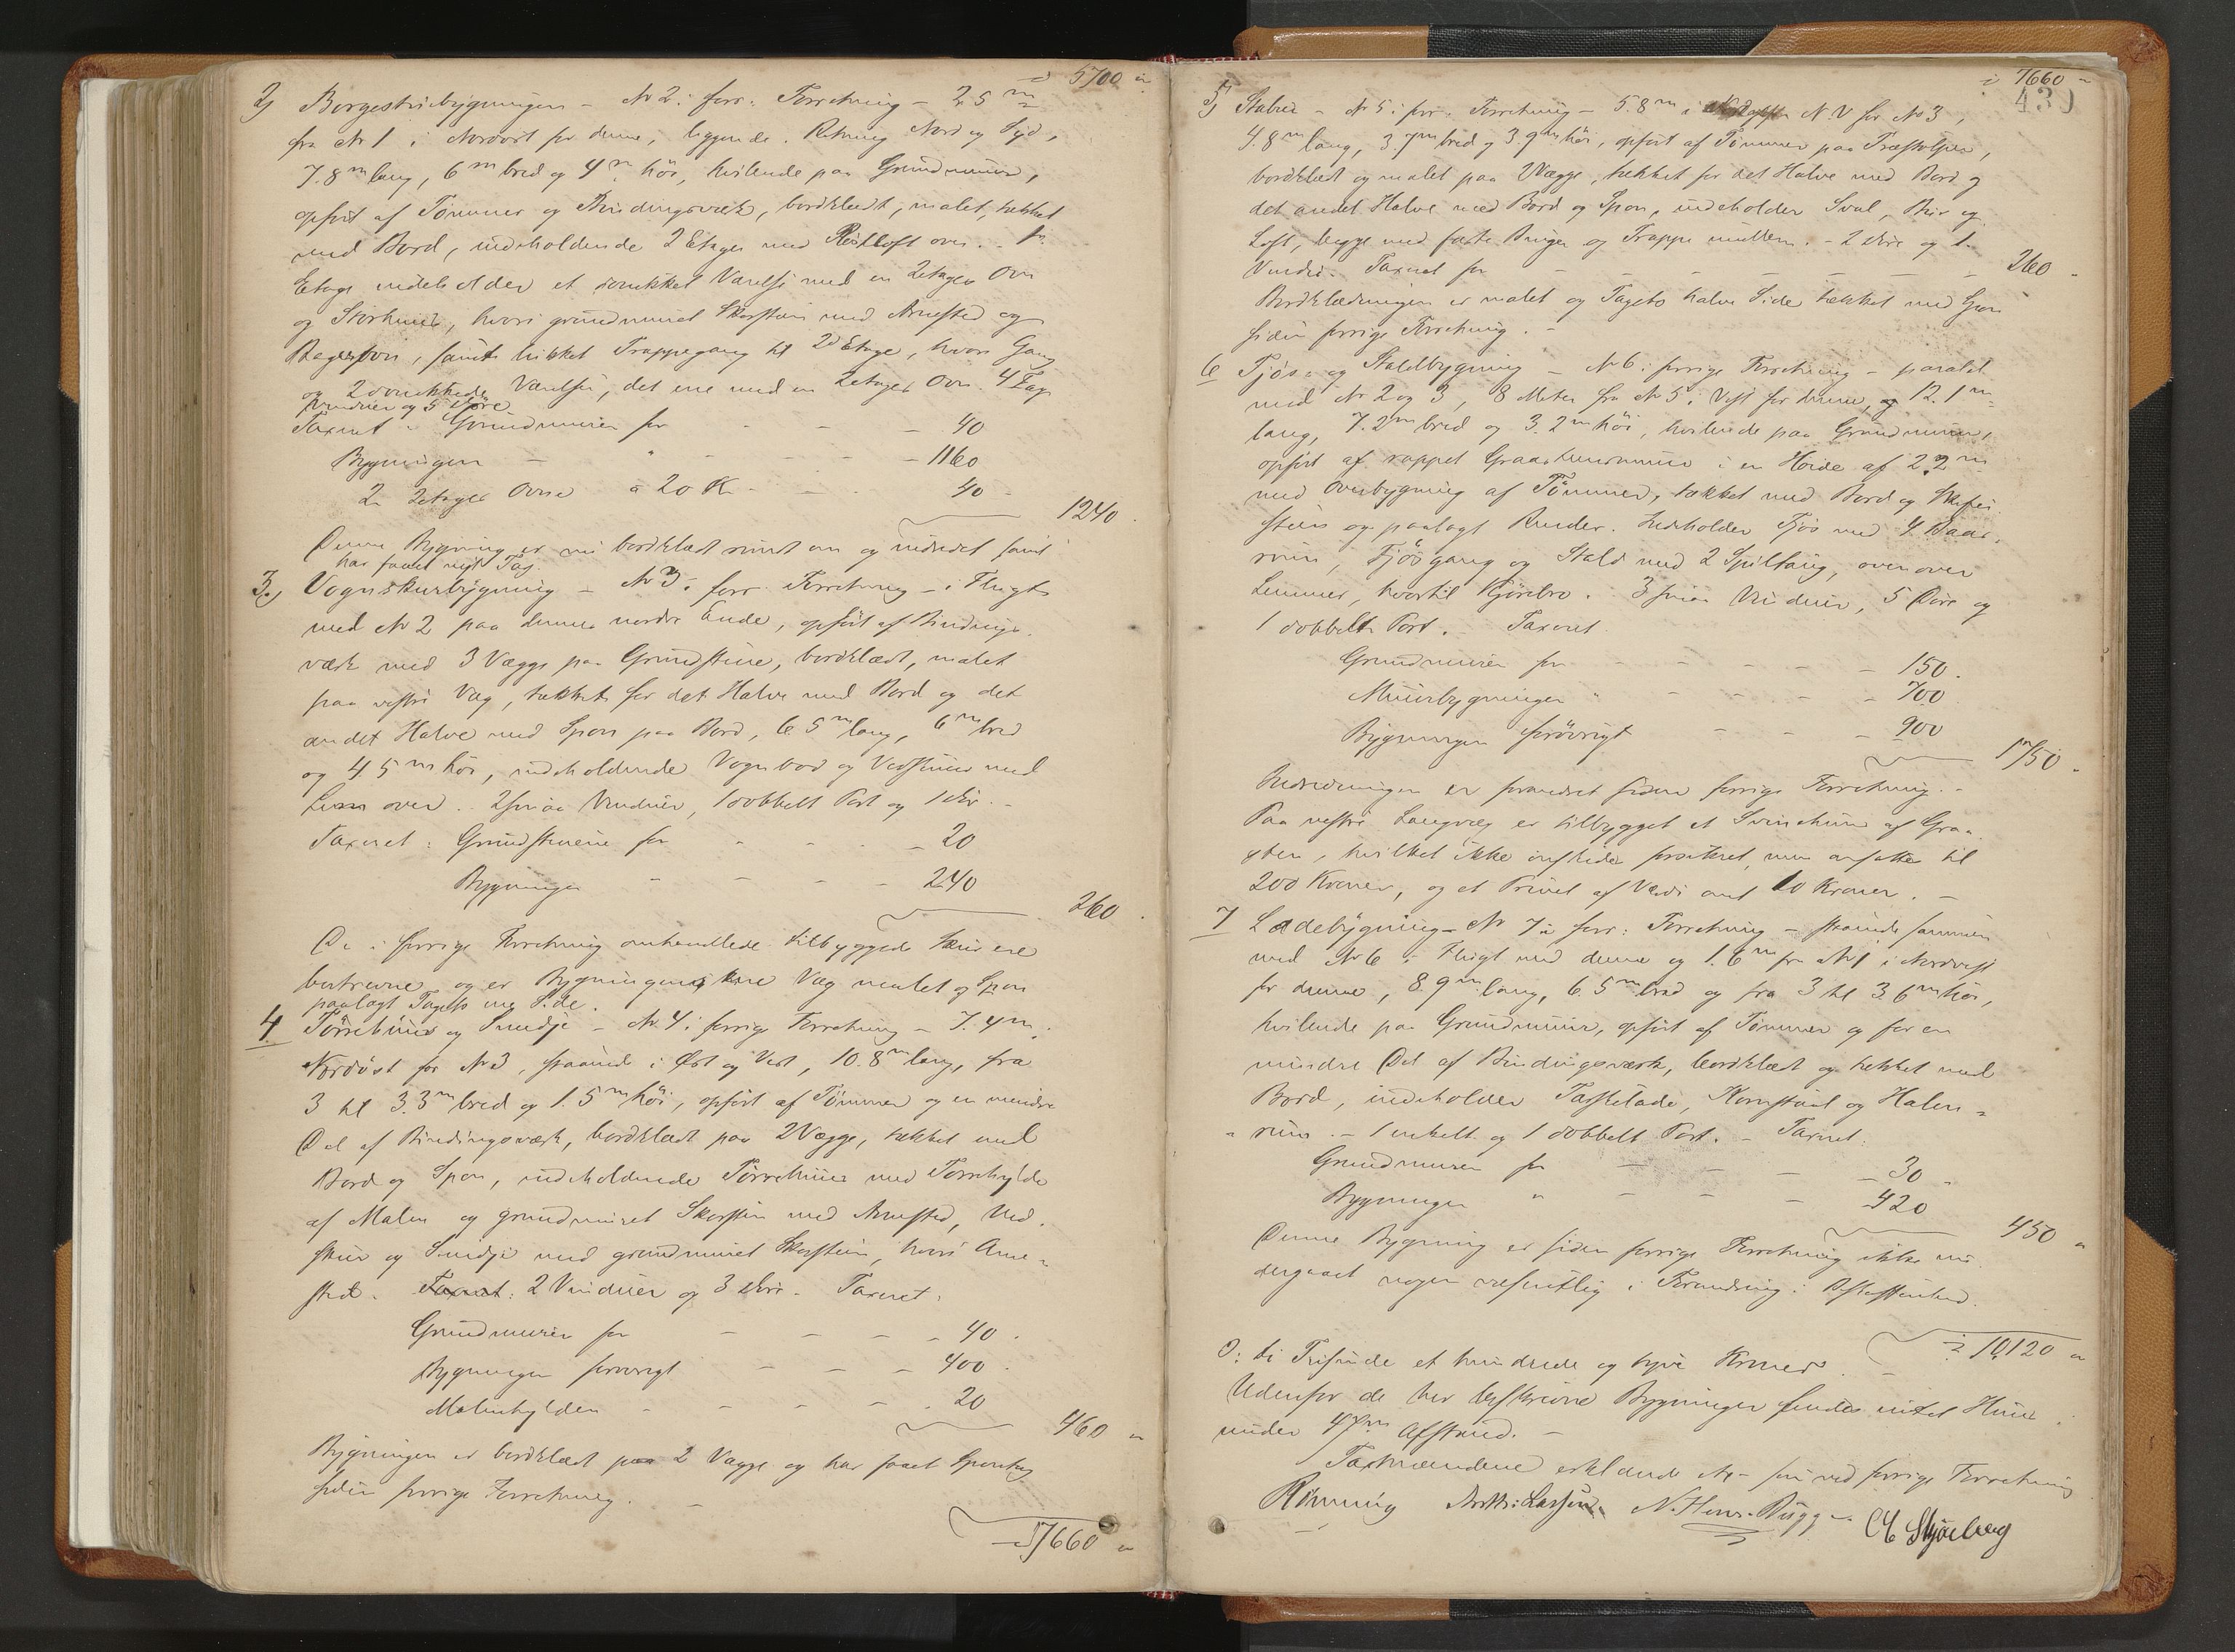 5700 "
2) Borgestuebygningen - No 2 i forr: Forretning - 2.5 m
fra No 1 i Nordvest for denne, liggende i Retning Nord og Syd,
7.8 m lang, 6 m bred og 4 m høi, hvilende paa Grundmuur,
opført af Tømmer og Bindingsværk, bordklædt, malet, tækket
med Bord, indeholdende 2 Etager med Røstloft over. 1ste
Etage indeholder et Værelse med en 2etages Ovn
og Storhuus, hvori grundmuret Skorsten med Arnested og
Bagerovn, samt lukket Trappegang til 2d Etage, hvori Gang
og 2 Værelser, det ene med en 2etages Ovn. 4 Fag
Vinduer og 5 Døre
Taxeret: Grundmuren for - - - 40
Bygningen - " - - - 1160
2 2etages Ovne a 20 Kr - - 40
1240.
Denne Bygning er nu bordklædt rundt om og indredet samt
har faaet nyt Tag.
3) Vognskurbygning - No 3 i forr: Forretning - i Flugt
med No 2 paa dennes nordre Ende, opført af Bindings-
værk med 3 Vægge paa Grundstene, bordklædt, malet
paa vestre Væg, tækket for det Halve med Bord og det
andet Halve med Spon paa Bord, 6.5 m lang, 6 m bred
og 4.5 m høi, indeholdende Vognbod og Vedskuur med
Lem over. 2 smaa Vinduer, 1 dobbelt Port og 1 Dør. -
Taxeret: Grundstenene for - - - 20
Bygningen - - - - 240
260.
De i forrige Forretning omhandlede tilbyggede Skure ere
borttrevne og er Bygningens ene Væg malet og Spon
paalagt Tagets ene Side.
4. Tørrehuus og Smedje - No 4 i forrige Forretning - 7.4 m
Nordøst for No 3, staaende i Øst og Vest, 10.8 m lang, fra
3 til 3.3 m bred og 1.5 m høi, opført af Tømmer og en mindre
Del af Bindingsværk, bordklædt paa 2 Vægge, tækket med
Bord og Spon, indeholdende Tørrehuus med Tørrehylde
af Malm og grundmuret Skorsten med Arnested, Ved-
skuur og Smedje med grundmuret Skorsten, hvori Arne-
sted. Taxeret: 2 Vinduer og 3 Døre. Taxeret:
Grundmuren for - - - - 40.
Bygningen forøvrigt - - - 400.
Malmhylden - - - - 20
460 "
Bygningen er bordklædt paa 2 Vægge og har faaet Spontag
siden forrige Forretning. -
7660 "
7660 "
439
5) Stabur - No 5 i forr: Forretning - 5.8 m i N.V for No 3,
4.8 m lang, 3.7 m bred og 3.9 m høi, opført af Tømmer paa Træstolper,
bordklædt og malet paa 2 Vægge, tækket for det Halve med Bord og
det andet Halve med Bord og Spon, indeholder Sval, Bur og
Loft, begge med faste Binger og Trappe mellem. - 2 Døre og 1
Vindu. Taxeret for - - - - - - 260 -
Bordklædningen er malet og Tagets halve Side tækket med Spon
siden forrige Forretning. -
6 Fjøs- og Staldbygning - No 6 i forrige Forretning - paralel
med No 2 og 3, 8 Meter fra No 5 i Vest for denne, og 12.1 m
lang, 7.2 m bred og 3.2 m høi, hvilende paa Grundmuur,
opført af rappet Graastensmuur i en Høide af 2.2 m
med Overbygning af Tømmer, tækket med Bord og Skifer-
steen og paalagt Render. Indeholder Fjøs med 4 Baas-
rum, Fjøsgang og Stald med 2 Spiltaug, ovenover
Lemmer, hvortil Kjørebro. 3 smaa Vinduer, 5 Døre og
1 dobbelt Port. Taxeret
Grundmuren for - - - - - 150.
Muurbygningen " - - - - 700
Bygningen forøvrigt - - - 900
1750 -
Indredningen er forandret siden forrige Forretning. -
Paa vestre Langvæg er tilbygget et Svinehuus af Graa-
sten, hvilket ikke ønskedes forsikret, men ansattes til
200 Kroner, og et Privet af Værdi omt 10 Kroner. -
7 Ladebygning - No 7 i forr: Forretning - staaende sammen
med No 6 i Flugt med denne og 1.6 m fra No 1 i Nordvest
for denne, 8.9 m lang, 6.5 m bred og fra 3 til 3.6 m høi,
hvilende paa Grundmuur, opført af Tømmer og for en
mindre Del af Bindingsværk, bordklædt og tækket med
Bord, indeholder Taskelade, Kornstaal og Halm-
-rum. - 1 enkelt og 1 dobbelt Port. - Taxeret:
Grundmuren for - - - 30 -
Bygningen " - - - 420
450 "
Denne Bygning er siden forrige Forretning ikke un-
dergaaet nogen væsentlig Forandring i Beskaffenhed.
10120 "
ɔ: ti Tusinde et hundrede og tyve Kroner. -
Udenfor de her beskrevne Bygninger findes intet Huus
under 47 m Afstand. -
Taxtmændene erklærede No - som ved forrige Forretning
Rønning N. Hens. Bugge CE Skjærberg